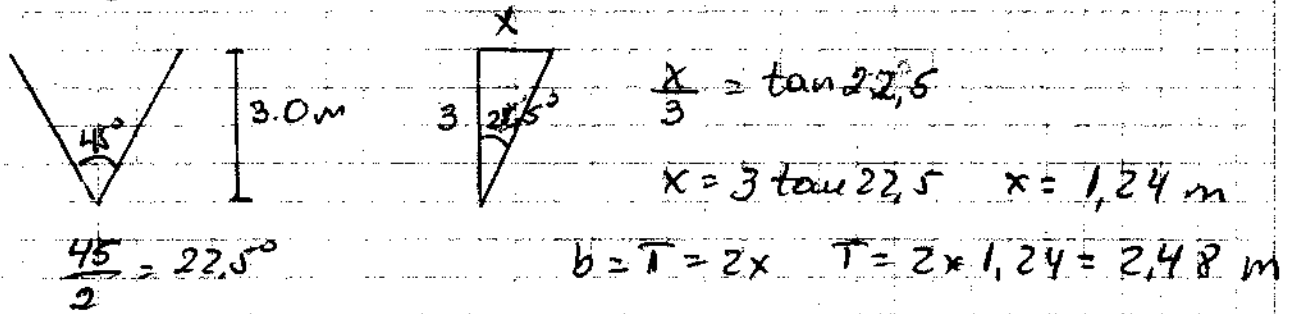 x
45°
3.0 m
3
22,5°
x/3 = tan 22,5
x = 3 tan 22,5 x = 1,24 m
45/2 = 22,5°
b = T = 2x T = 2x 1,24 = 2,48 m